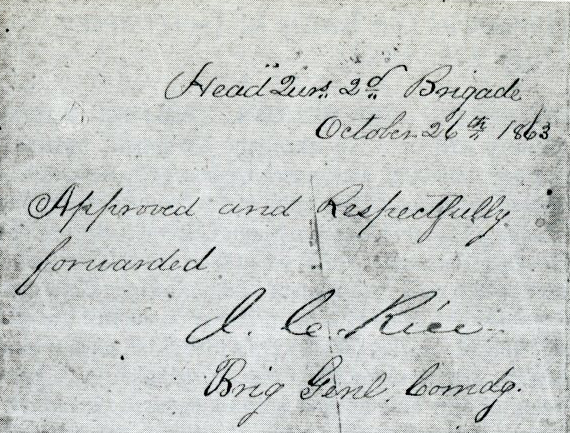 Head Qurs. 2d Brigade
October 26th 1863
Approved and Respectfully
forwarded
J. C. Rice
Brig Genl. Comdg.